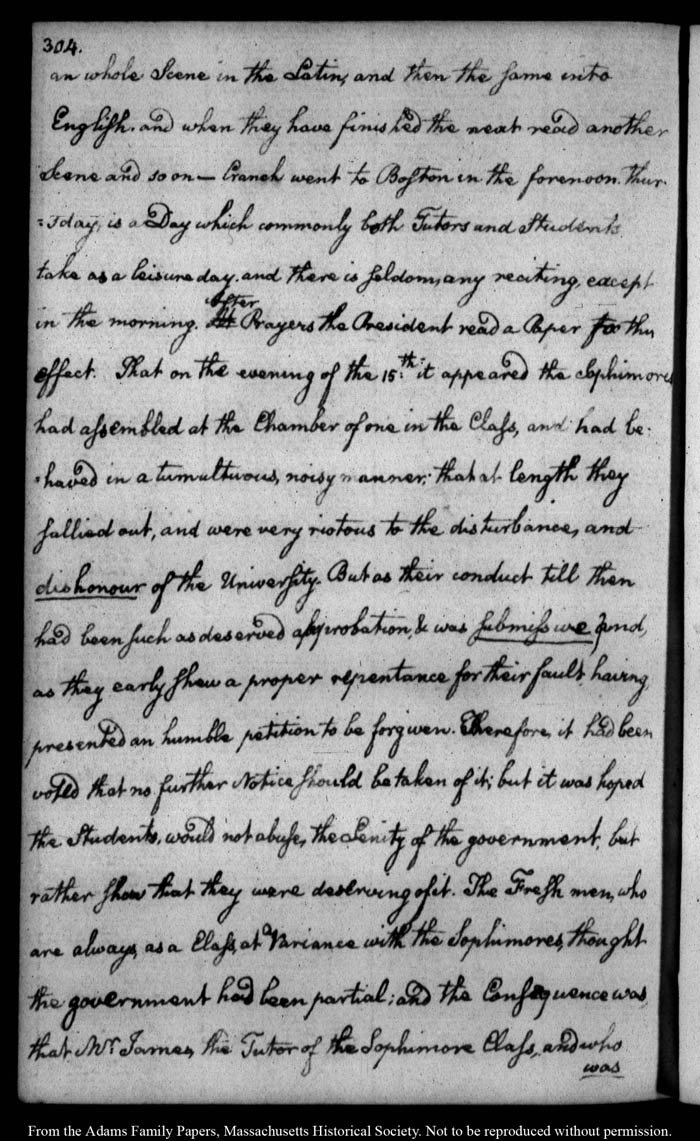 304.
an whole Scene in the Latin, and then the same into
English. and when they have finished the next read another
Scene and so on — Cranch went to Boston in the forenoon. Thur-
=sday, is a Day which commonly both Tutors and Students
take as a leisure day. and there is seldom, any reciting, except
After
in the morning. At Prayers the President read a Paper to this
effect. That on the evening of the 15.th: it appeared the Sophimores
had assembled at the Chamber of one in the Class, and had be-
-haved in a tumultuous, noisy manner; that at length they
sallied out, and were very riotous to the disturbance, and
dishonour of the University. But as their conduct till then
had been such as deserved approbation, & was submissive, and,
as they early shew a proper repentance for their fault, having,
presented an humble petition to be forgiven. Therefore, it had been
voted that no further Notice should be taken of it; but it was hoped
the Students, would not abuse, the Lenity of the government, but
rather show that they were deserving of it. The Fresh men, who
are always, as a Class, at Variance with the Sophimores, thought
the government had been partial; and the Consequence was,
that Mr. James, the Tutor of the Sophimore Class, and who
was
From the Adams Family Papers, Massachusetts Historical Society. Not to be reproduced without permission.